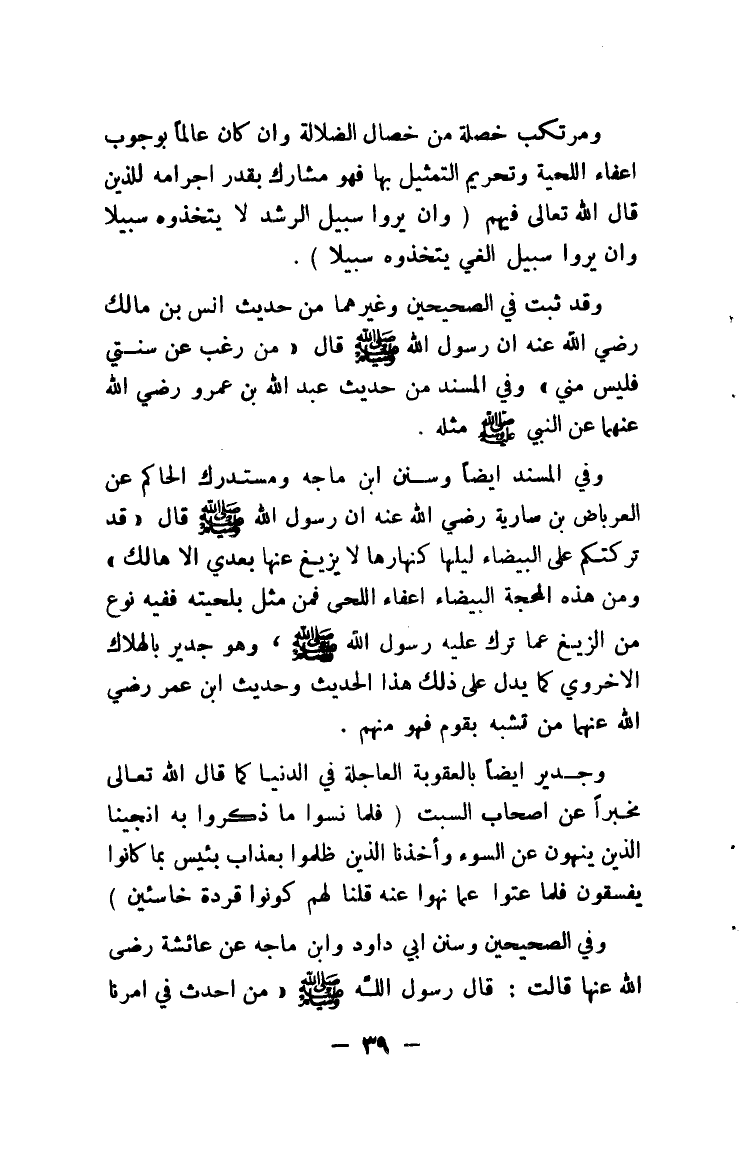 ومرتكب خصلة من خصال الضلالة وان كان عالماً بوجوب
اعفاء اللحية وتحريم التمثيل بها فهو مشارك بقدر اجرامه للذين
قال الله تعالى فيهم ( وان يروا سبيل الرشد لا يتخذوه سبيلا
وان يروا سبيل الغي يتخذوه سبيلا ) .
وقد ثبت في الصحيحين وغيرهما من حديث انس بن مالك
رضي الله عنه ان رسول الله ﷺ قال « من رغب عن سنتي
فليس مني » وفي المسند من حديث عبد الله بن عمرو رضي الله
عنهما عن النبي ﷺ مثله .
وفي المسند ايضاً وسنن ابن ماجه ومستدرك الحاكم عن
العرباض بن سارية رضي الله عنه ان رسول الله ﷺ قال « قد
تركتكم على البيضاء ليلها كنهارها لا يزيغ عنها بعدي الا هالك »
ومن هذه المحجة البيضاء اعفاء اللحى فمن مثل بلحيته ففيه نوع
من الزيغ عما ترك عليه رسول الله ﷺ ، وهو جدير بالهلاك
الاخروي كما يدل على ذلك هذا الحديث وحديث ابن عمر رضي
الله عنهما من تشبه بقوم فهو منهم .
وجدير ايضاً بالعقوبة العاجلة في الدنيا كما قال الله تعالى
مخبراً عن اصحاب السبت ( فلما نسوا ما ذكروا به انجينا
الذين ينهون عن السوء وأخذنا الذين ظلموا بعذاب بئيس بما كانوا
يفسقون فلما عتوا عما نهوا عنه قلنا لهم كونوا قردة خاسئين )
وفي الصحيحين وسنن ابي داود وابن ماجه عن عائشة رضى
الله عنها قالت : قال رسول الله ﷺ « من احدث في امرنا
– ٣٩ –